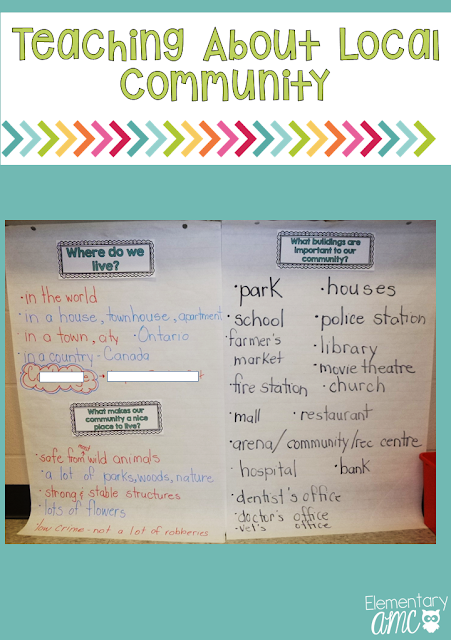 Teaching About Local
Community
Where do we
live?
·in the world
·in a house, townhouse, apartment
·in a town, city ·Ontario
·in a country - Canada
What makes our
community a nice
place to live?
·safe from wild animals
·a lot of parks, woods, nature
·strong & stable structures
·lots of flowers
·low crime - not a lot of robberies
What buildings are
important to our
community?
·park ·houses
·school ·police station
·farmer's
market
·library
·movie theatre
·fire station ·church
·mall ·restaurant
·arena/community/rec centre
·hospital ·bank
·dentist's office
·doctor's office
·vet's office
Elementary
AMC